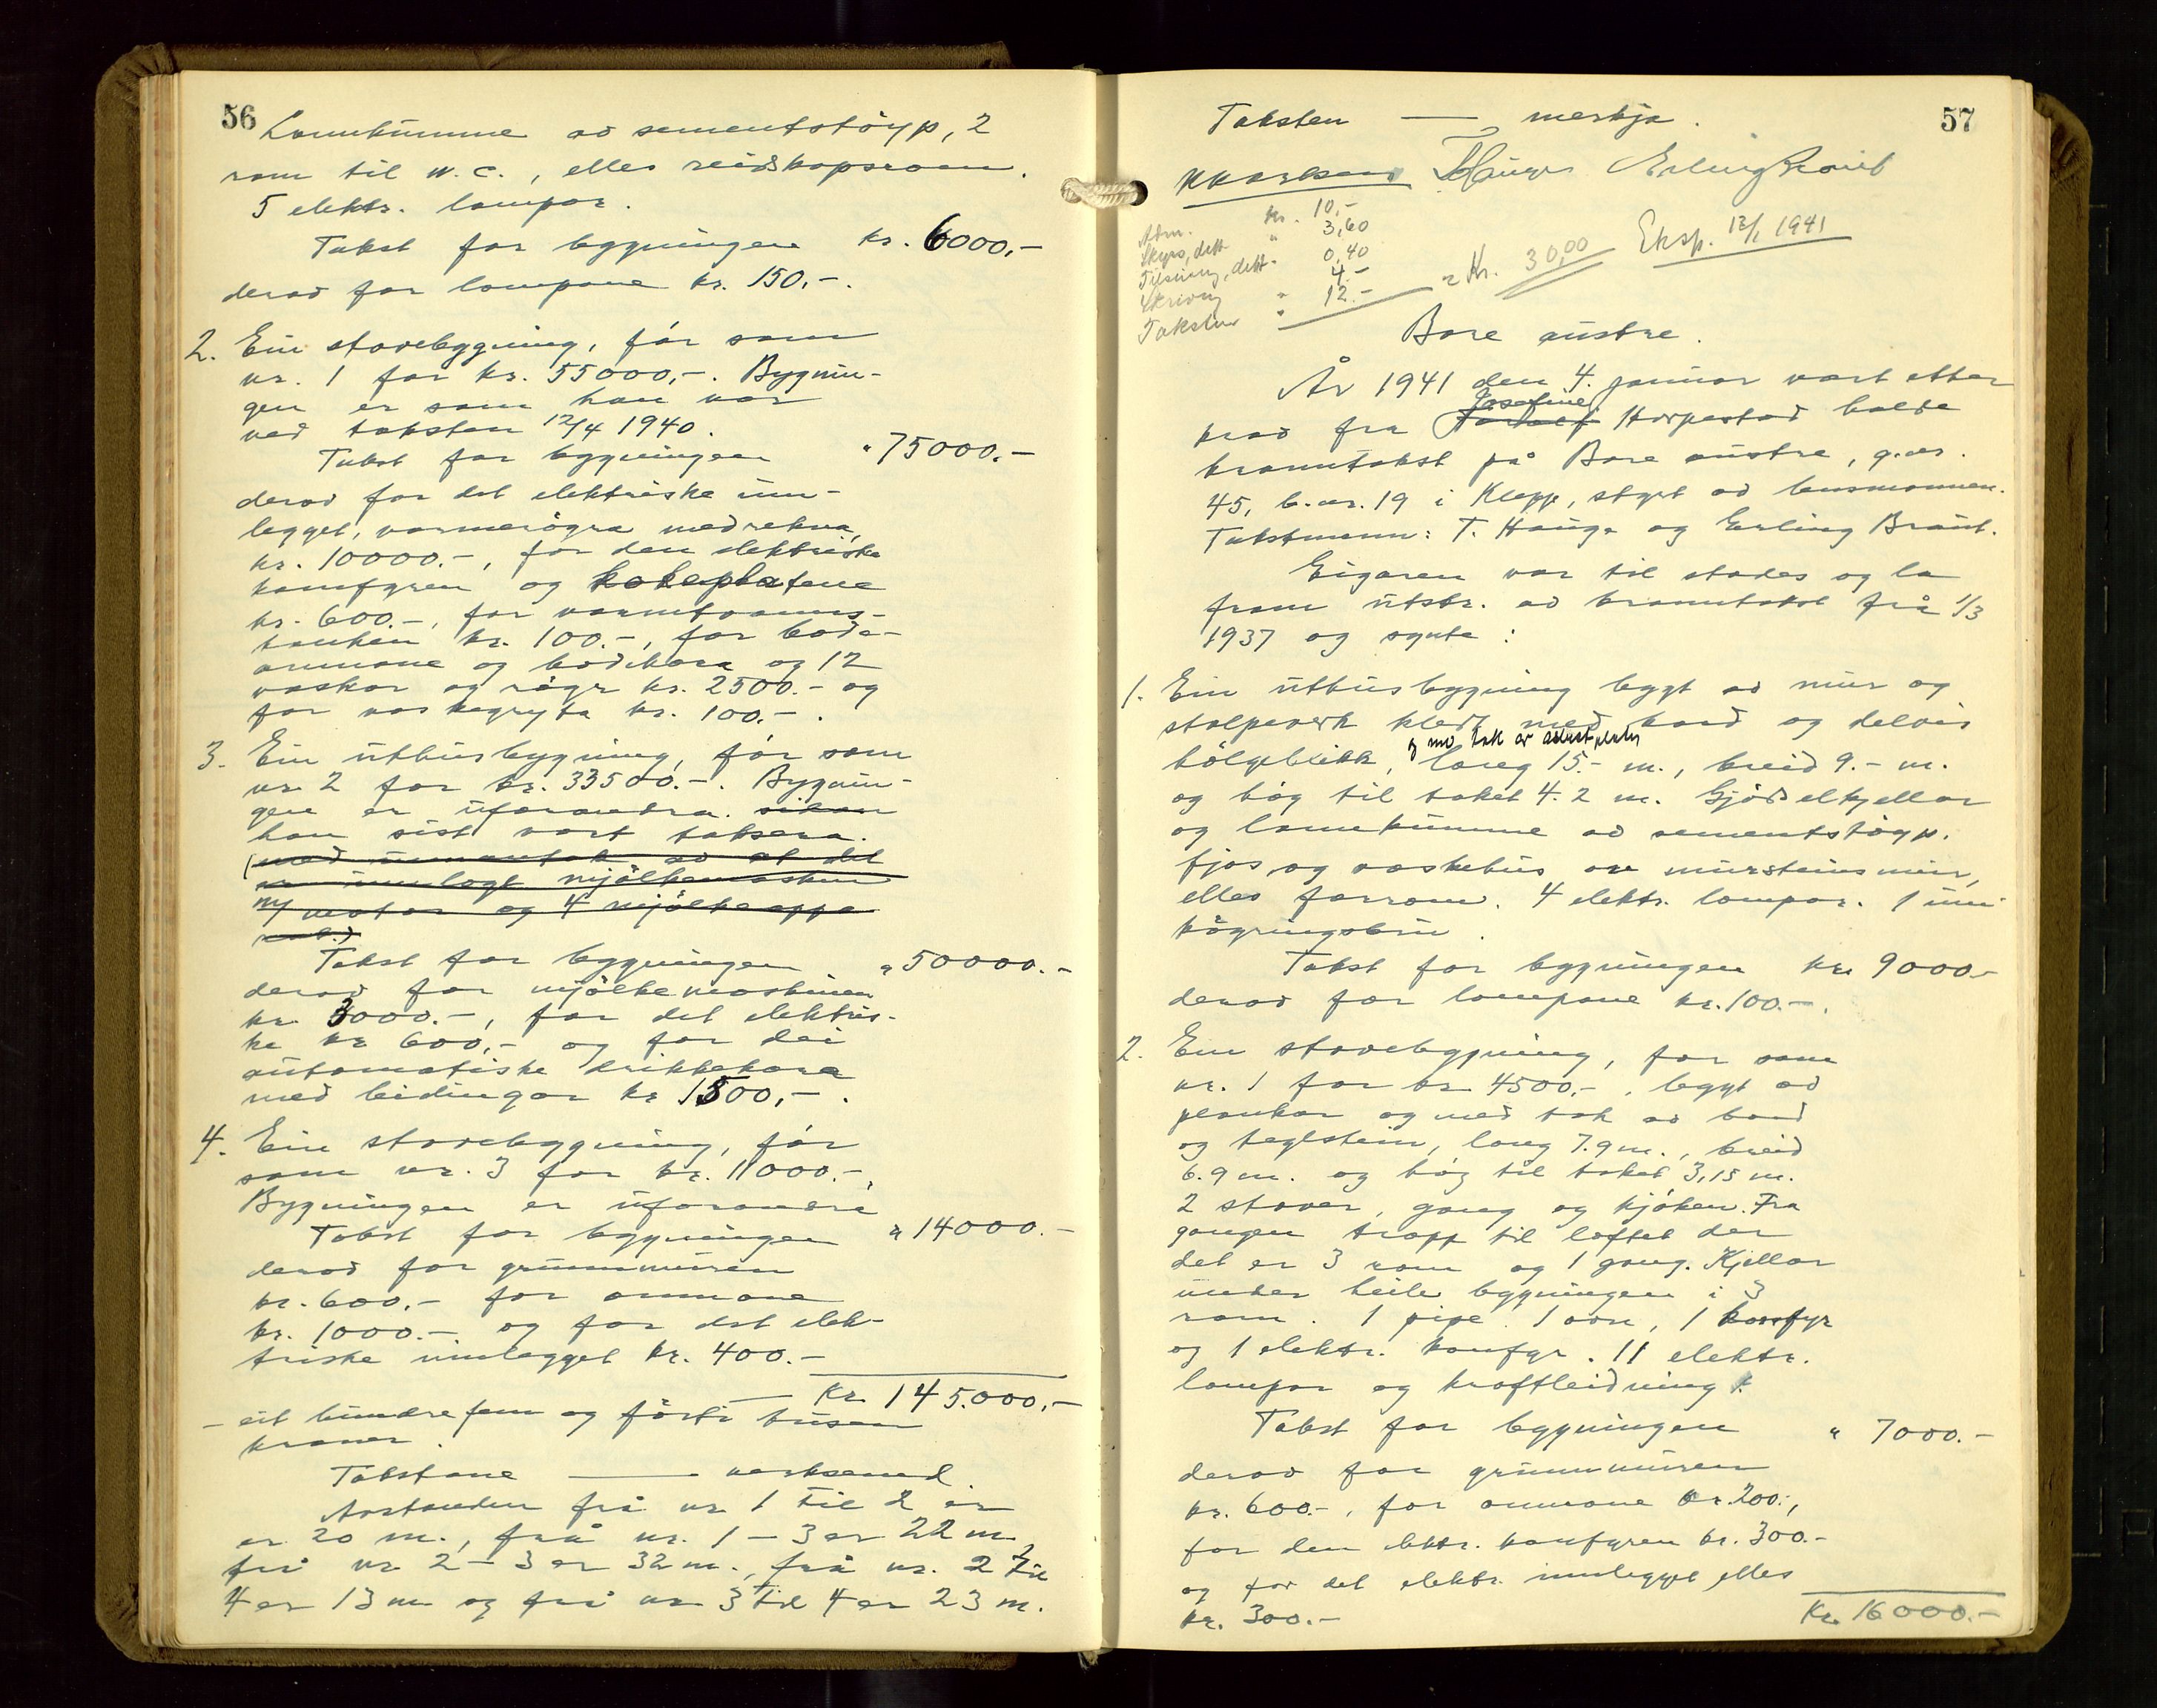 56
Lannkumme av sementstöyp, 2
rom til w.c., elles reidskapsrom.
5 elektr. lampor.
Takst for bygningen kr. 6000,-
derav for lampone kr. 150,-.
2. Ein stovebygning, för som
nr. 1 for kr. 55000,-. Bygnin-
gen er som han var
ved taksten 12/4 1940.
Takst for bygningen " 75000.-
derav for det elektriske inn-
legget, varmeröyra medrekna,
kr. 10000.-, for den elektriske
komfyren og kokeplatene
kr. 600.-, for varmtvanns-
tanken kr. 100.-, for bade-
omnane og badekara og 12
vaskar og röyr kr. 2500.- og
for vaskegryta kr. 100.-.
3. Ein uthusbygning, för som
nr. 2 for kr. 33500.-. Bygnin-
gen er uforandra sidan
han sist vart taksera.
(med unnantak av at det
er innlagt mjölkemaskin
m/ motor og 4 mjölke

Takst for bygningen " 50000.-
derav for mjölkemaskinen
kr. 3000.-, for det elektris-
ke kr 600,- og for dei
automatiske drikkekara
med leidingar kr 1500,-.
4. Ein stovebygning, för
som nr. 3 for kr. 11000.-,
Bygningen er uforandra
Takst for bygningen " 14000.-
derav for grunnmuren
kr. 600.- for omnane
kr. 1000.- og for det elek-
triske innlegget kr. 400.-
Kr 145.000,-
- eit hundre fem og förti tusen
kroner.
Takstane — verksemd.
Avstanden frå nr. 1 til 2 er
er 20 m., frå nr. 1 - 3 er 22 m,
frå nr 2 - 3 er 32 m., frå nr. 2 til
4 er 13 m og frå nr 3 til 4 er 23 m.
57
Taksten — merkja.
K Karlsen T Hauge Erling Braut
Adm. kr. 10,-
Skyss, dett. " 3,60
Tilsiing, dett " 0,40
Skriving " 4.-
Takstm " 12.-
= Kr. 30,00 Eksp. 13/1 1941
Bore austre.
År 1941 den 4. januar vart etter
Josefine
krav fra Torleif Horpestad halde
branntakst på Bore austre, g.nr.
45, b.nr. 19 i Klepp, styrt av lensmannen.
Takstmenn: T. Hauge og Erling Braut.
Eigaren var til stades og la
fram utskr. av branntakst frå 1/3
1937 og synte:
1. Ein uthusbygning bygt av mur og
stolpeverk kledt med bord og delvis
og med tak av asbestplater
bölgeblikk, lang 15.- m., breid 9.- m.
og hög til taket 4.2 m. Gjödselkjellar
og lannkumme av sementstöyp.
Fjos og vaskehus av mursteinsmur,
elles forrom. 4 elektr. lampor. 1 inn-
köyringsbru.
Takst for bygningen kr 9000-
derav for lampone kr. 100.-.
2. Ein stovebygning, for som
nr. 1 for kr 4500.-, bygt av
plankar og med tak av bord
og teglstein, lang 7.9 m., breid
6.9 m. og hög til taket 3,15 m.
2 stover, gang og kjöken. Fra
gangen trapp til loftet der
det er 3 rom og 1 gang. Kjellar
under heile bygningen i 3
rom. 1 pipe. 1 omn, 1 komfyr
og 1 elektr. komfyr. 11 elektr.
lampor og kraftleidning.
Takst for bygningen " 7000.-
derav for grunnmuren
kr. 600.-, for omnane kr. 200.-,
for den elektr. komfyren kr. 300.-
og for det elektr. innlegget elles
kr. 300.-
Kr. 16000.-